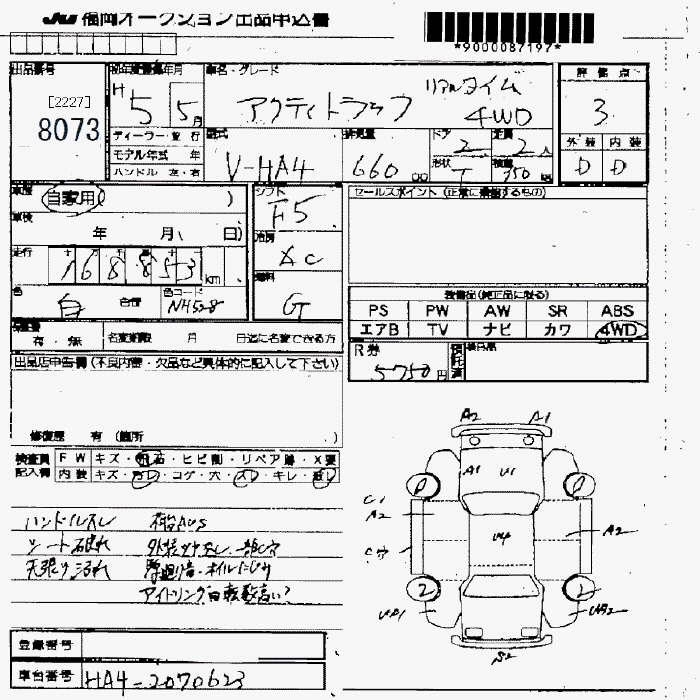 JU 福岡オークション出品申込書
*9000087197*
出品番号 初年度登録年月 車名・グレード 評価点
[2227]
8073
H5 5月
リアルタイム
アクティトラック 4WD
3
ディーラー 並行
モデル年式 年
ハンドル 左・右
型式 排気量 ドア 定員
V-HA4 660 cc 2 2人
形状 T 積載 350 kg
外装 内装
D D
車歴 自家用 )
シフト F5
セールスポイント (正常に機能するもの)
車検 年 月( 日)
冷房 AC
走行 168853 km
燃料 G
色 白 色コード NH528
装備品(純正品に限る)
PS PW AW SR ABS
エアB TV ナビ カワ 4WD
有・無 名変期限 月 日迄に名変できる方
R券 5750円
出品店申告欄(不良内容・欠品など具体的に記入して下さい)
修復歴 有(箇所 )
検査員 FW キズ・飛石・ヒビ割・リペア跡・X要
記入欄 内装 キズ・汚レ・コゲ・穴・スレ・キレ・
ハンドルスレ
シート破れ
天張り汚れ
アイドリング回転数高い?
A2 A1
A1 U1
C1
A2
U4
A2
2 2
S2
登録番号
車台番号 HA4-2070623